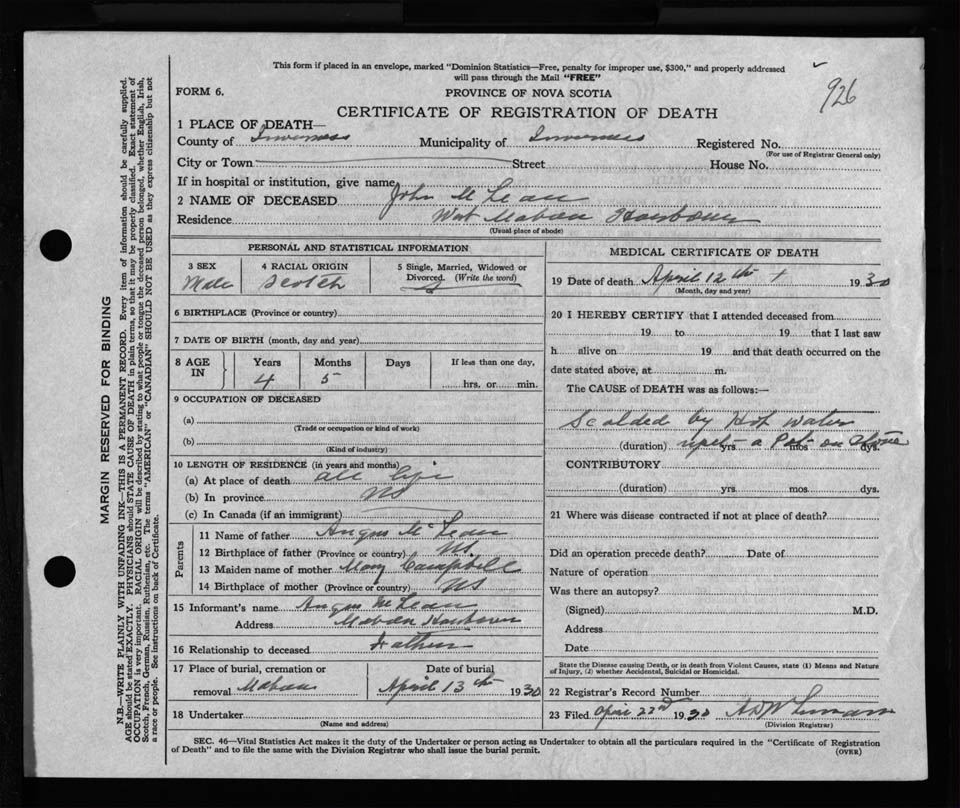 This form if placed in an envelope, marked "Dominion Statistics—Free, penalty for improper use, $300," and properly addressed
will pass through the Mail "FREE"
926
FORM 6.
PROVINCE OF NOVA SCOTIA
CERTIFICATE OF REGISTRATION OF DEATH
1 PLACE OF DEATH—
County of Inverness Municipality of Inverness Registered No.
(For use of Registrar General only)
City or Town Street House No.
If in hospital or institution, give name
2 NAME OF DECEASED John McLean
Residence West Mabou Harbour
(Usual place of abode)
PERSONAL AND STATISTICAL INFORMATION
3 SEX 4 RACIAL ORIGIN 5 Single, Married, Widowed or Divorced. (Write the word)
Male Scotch S
6 BIRTHPLACE (Province or country)
7 DATE OF BIRTH (month, day and year)
8 AGE IN Years Months Days If less than one day,
4 5 hrs. or min.
9 OCCUPATION OF DECEASED
(a)
(Trade or occupation or kind of work)
(b)
(Kind of industry)
10 LENGTH OF RESIDENCE (in years and months)
(a) At place of death all life
(b) In province NS
(c) In Canada (if an immigrant)
Parents
11 Name of father Angus McLean
12 Birthplace of father (Province or country) NS
13 Maiden name of mother Mary Campbell
14 Birthplace of mother (Province or country) NS
15 Informant's name Angus McLean
Address Mabou Harbour
16 Relationship to deceased Father
17 Place of burial, cremation or Date of burial
removal Mabou April 13th 1930
18 Undertaker
(Name and address)
MEDICAL CERTIFICATE OF DEATH
19 Date of death April 12th 1930
(Month, day and year)
20 I HEREBY CERTIFY that I attended deceased from
19 to 19 that I last saw
h alive on 19 and that death occurred on the
date stated above, at m.
The CAUSE of DEATH was as follows:—
Scalded by Hot Water
upset a Pot on Stove
(duration) yrs. mos. dys.
CONTRIBUTORY
(duration) yrs. mos. dys.
21 Where was disease contracted if not at place of death?
Did an operation precede death? Date of
Nature of operation
Was there an autopsy?
(Signed) M.D.
Address
Date
State the Disease causing Death, or in death from Violent Causes, state (1) Means and Nature
of Injury, (2) whether Accidental, Suicidal or Homicidal.
22 Registrar's Record Number
23 Filed April 22nd 1930
(Division Registrar)
SEC. 46—Vital Statistics Act makes it the duty of the Undertaker or person acting as Undertaker to obtain all the particulars required in the "Certificate of Registration
of Death" and to file the same with the Division Registrar who shall issue the burial permit.
(OVER)
MARGIN RESERVED FOR BINDING
N.B.—WRITE PLAINLY WITH UNFADING INK—THIS IS A PERMANENT RECORD. Every item of information should be carefully supplied.
AGE should be stated EXACTLY. PHYSICIANS should STATE CAUSE OF DEATH in plain terms, so that it may be properly classified. Exact statement of
OCCUPATION is very important. RACIAL ORIGIN will be described by stating to what people or tongue the deceased person belonged, whether English, Irish,
Scotch, French, German, Russian, Ruthenian, etc. The terms "AMERICAN" or "CANADIAN" SHOULD NOT BE USED as they express citizenship but not
a race or people. See instructions on back of Certificate.